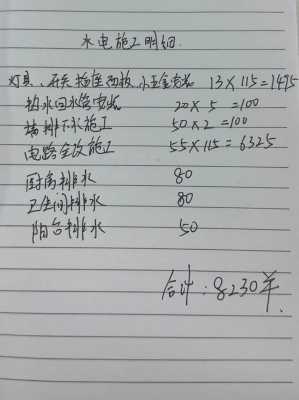 水电施工明细.
灯具、开关插座面板,小五金安装 13×115=1495
热水回水管安装 20×5=100
墙排下水施工 50×2=100
电路全改施工 55×115=6325
厨房排水 80
卫生间排水 80
阳台排水 50
合计:8230羊.